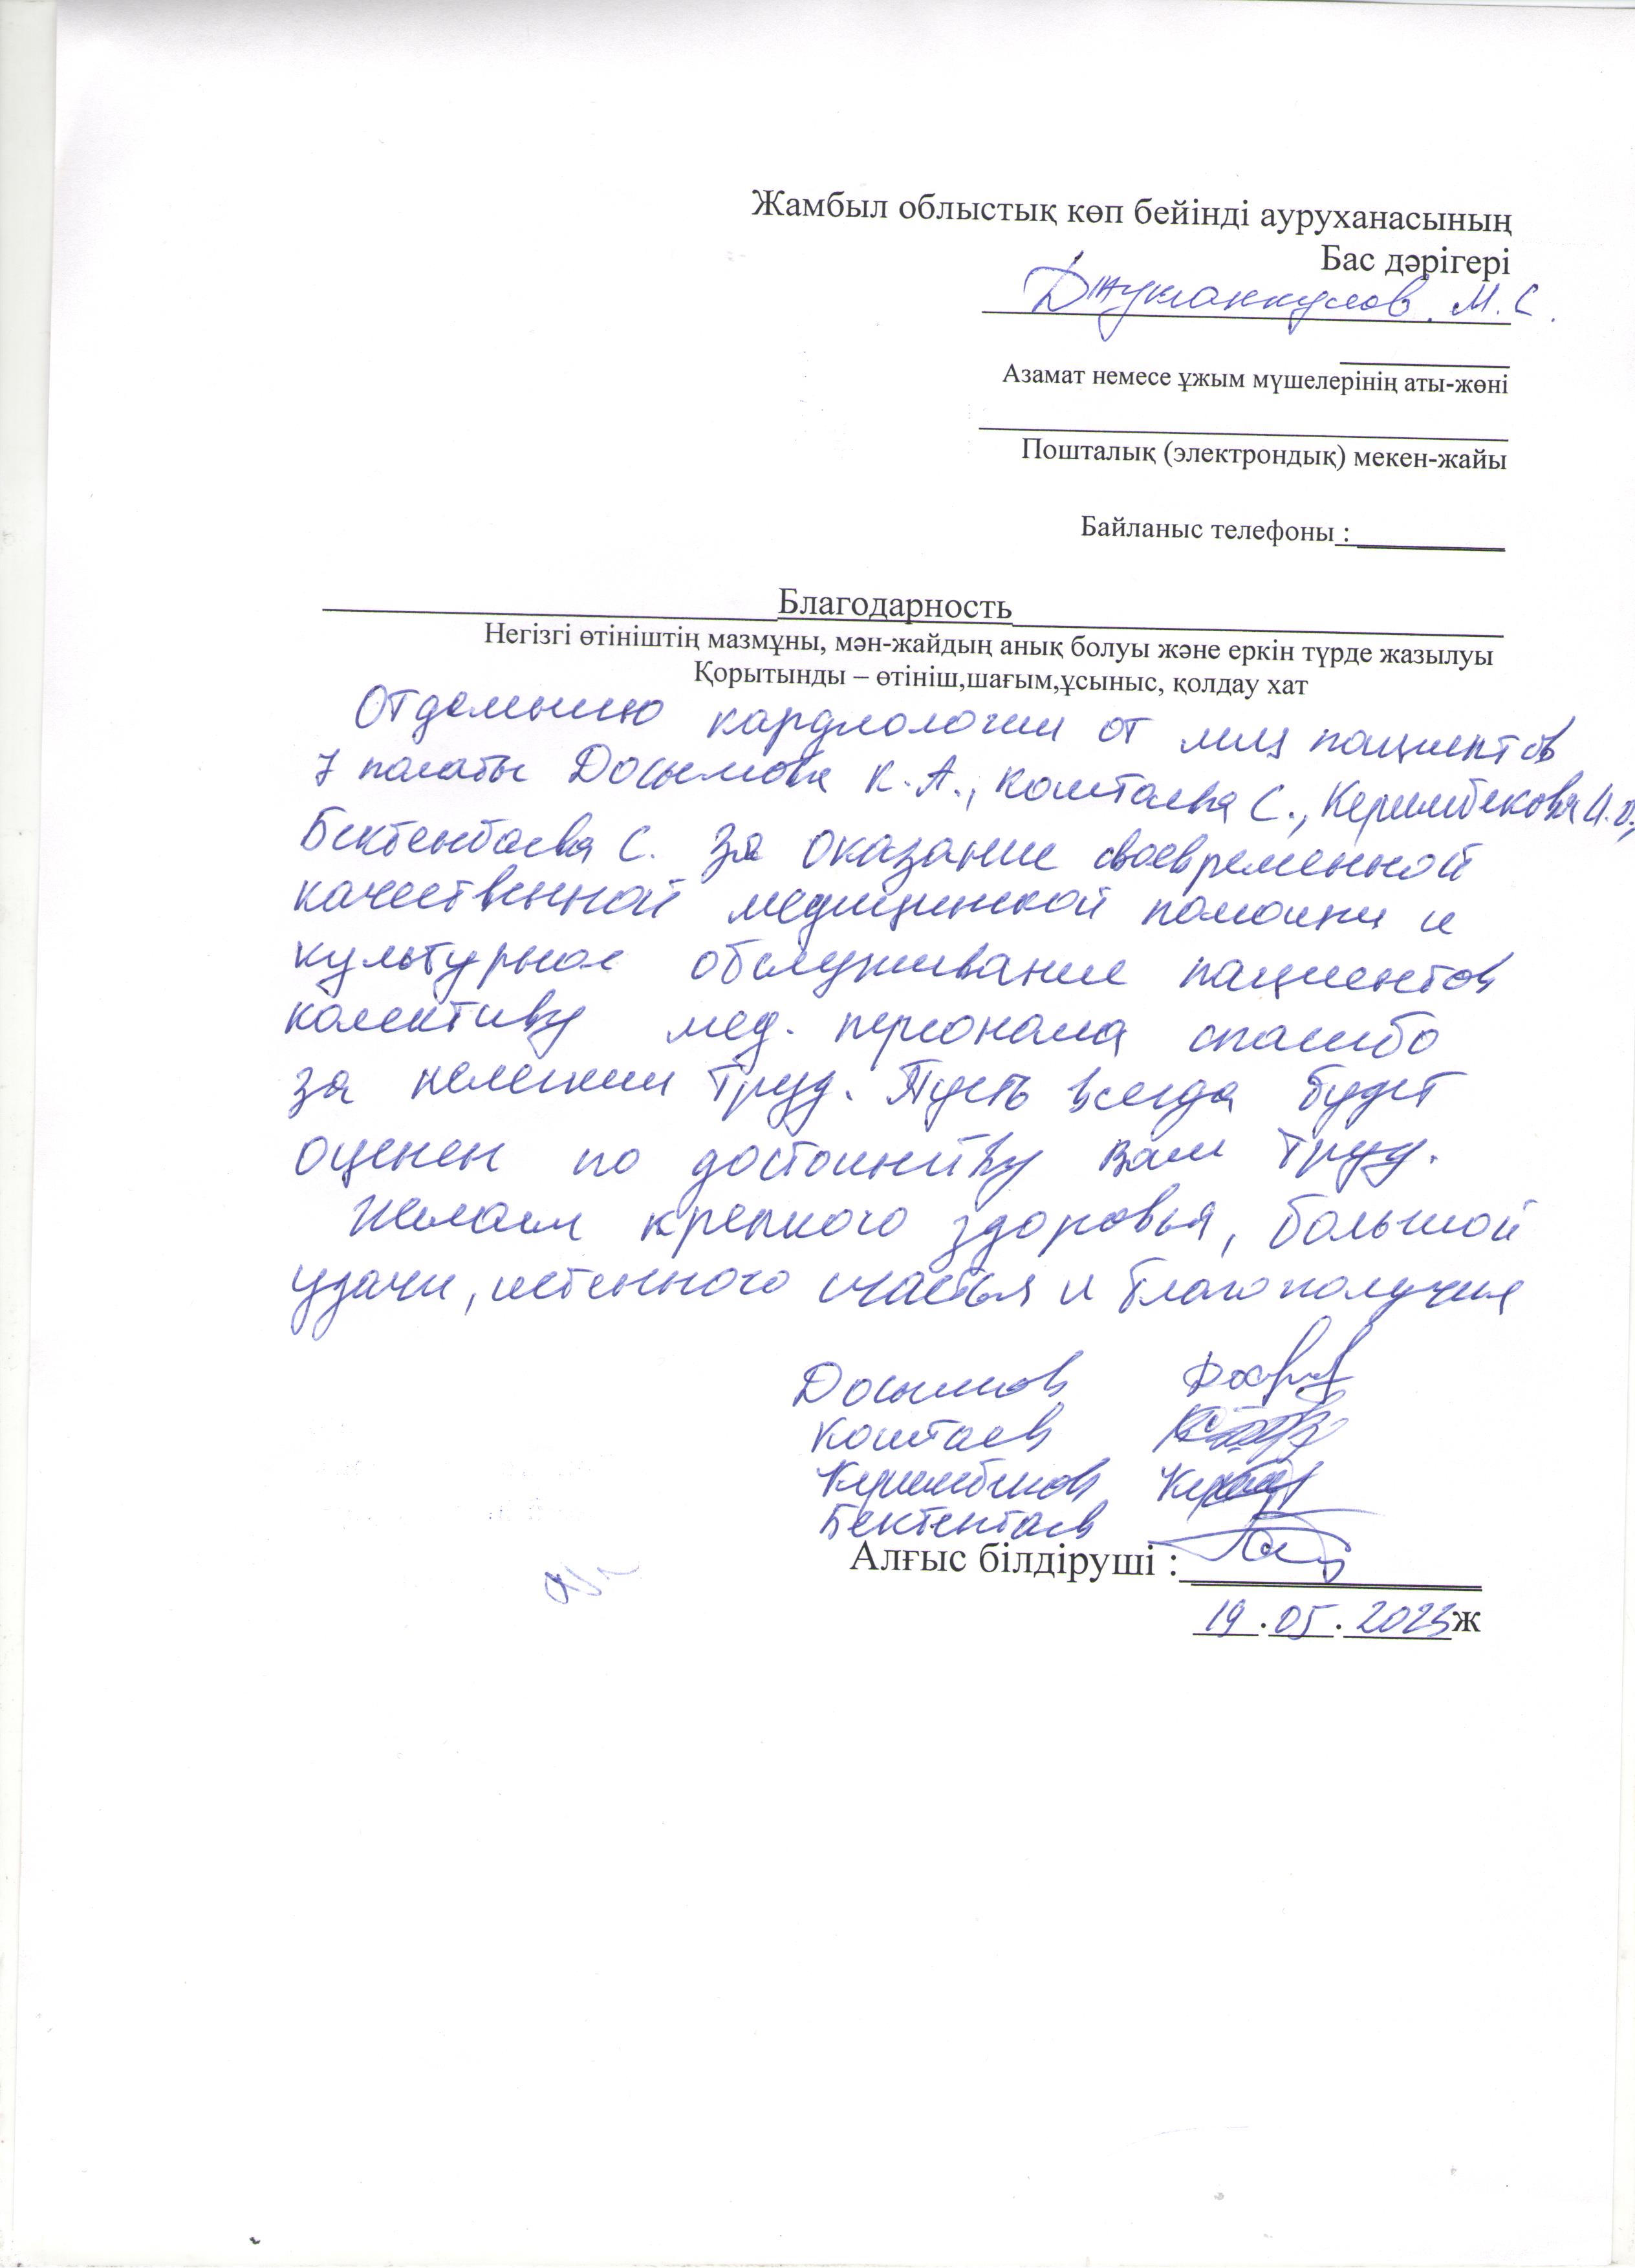 Жамбыл облыстық көп бейінді ауруханасының
Бас дәрігері
Джуманкулов. М.С.
Азамат немесе ұжым мүшелерінің аты-жөні
Пошталық (электрондық) мекен-жайы
Байланыс телефоны :
Благодарность
Негізгі өтініштің мазмұны, мән-жайдың анық болуы және еркін түрде жазылуы
Қорытынды – өтініш,шағым,ұсыныс, қолдау хат
Отделению кардиологии от лица пациентов
7 палаты Досымова К.А., Коштаева С., Керимбекова А.О.,
Бектенбаева С. За оказание своевременной
качественной медицинской помощи и
культурное обслуживание пациентов
колективу мед. персонала спасибо
за нелегкий труд. Пусть всегда будет
оценен по достоинству ваш труд.
Желаем крепкого здоровья, большой
удачи, истенного счастья и благополучия
Досымов
Коштаев
Керимбеков
Бектенбаев
Алғыс білдіруші :
19.05.2023ж